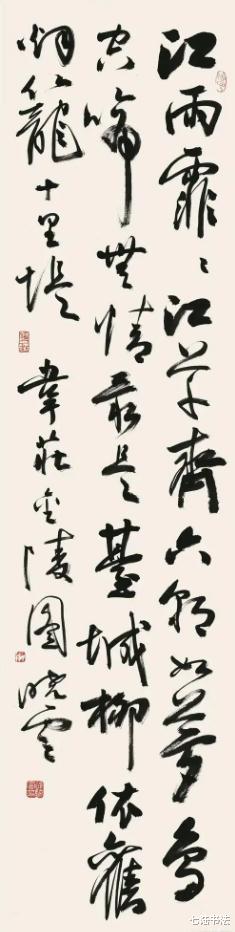 江雨霏〻江草齊六朝如夢鳥
空啼無情最是臺城柳依舊
烟籠十里堤 韋莊金陵圖 曉雲
书法